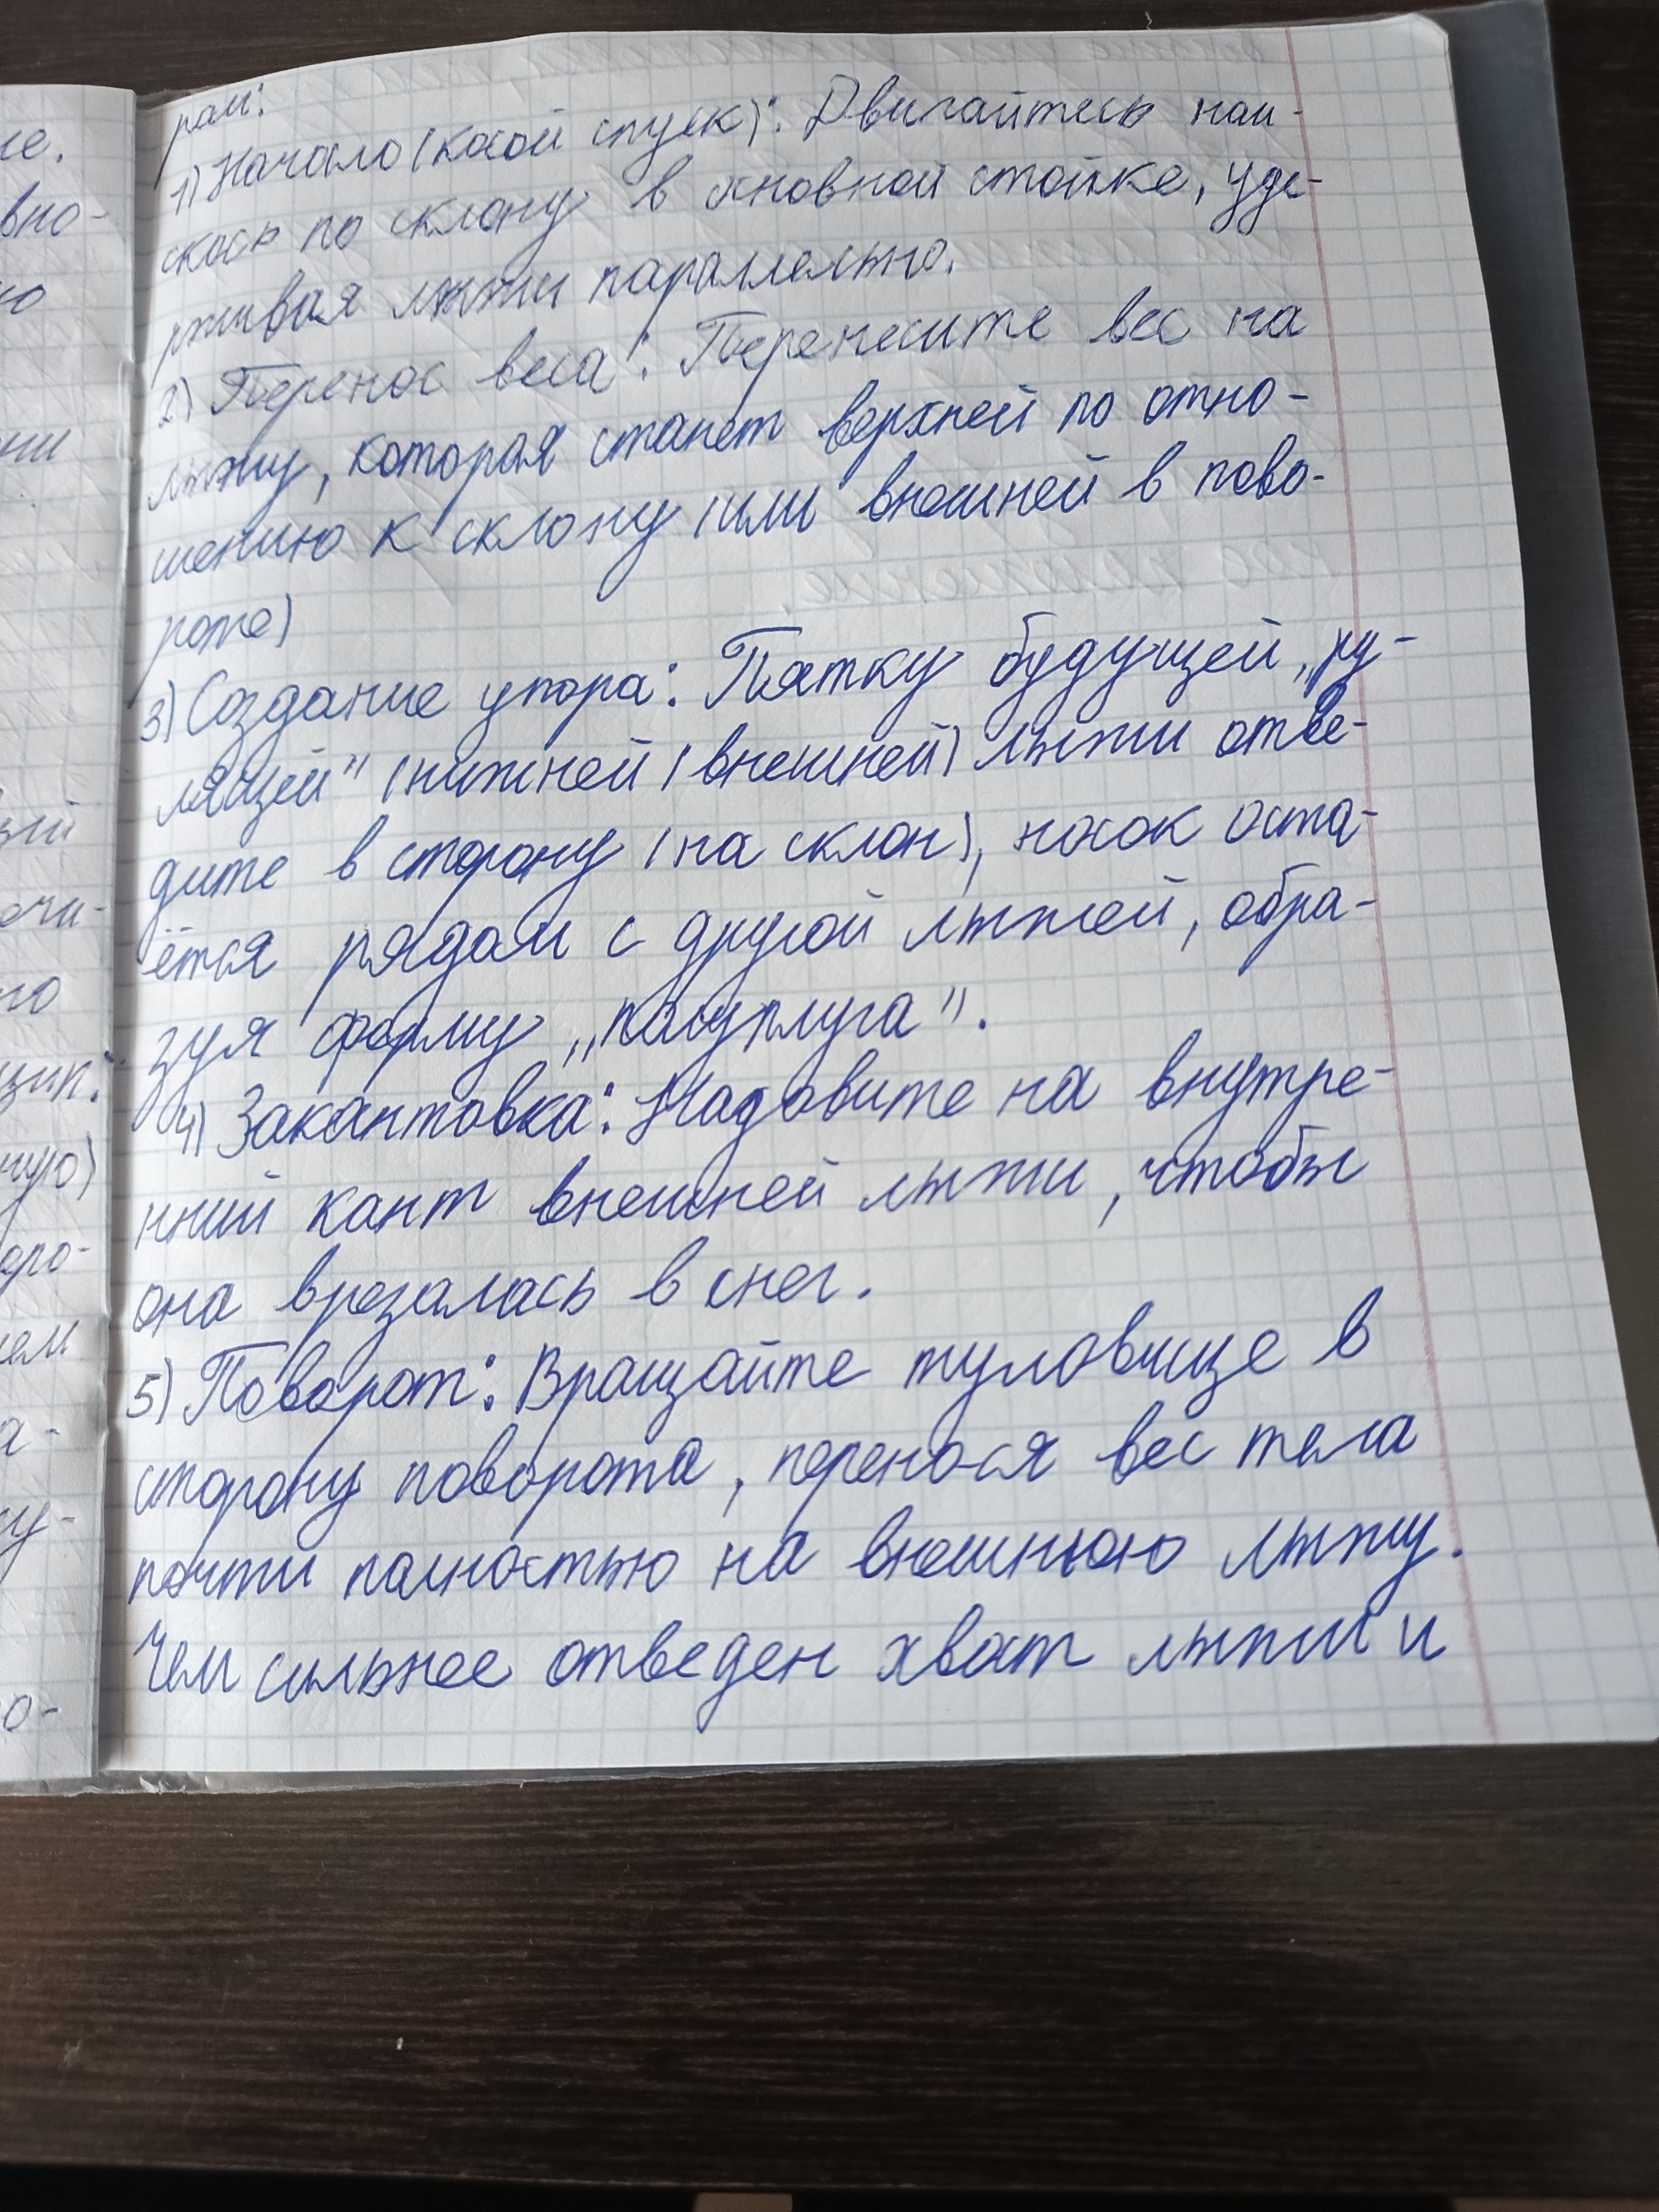 рам:
1) Начало (косой спуск): Двигайтесь наи-
скось по склону в основной стойке, уде-
рживая лыжи параллельно.
2) Перенос веса: Перенесите вес на
лыжу, которая станет верхней по отно-
шению к склону (или внешней в пово-
роте)
3) Создание упора: Пятку будущей „ру-
лящей" (нижней / внешней) лыжи отве-
дите в сторону (на склон), носок оста-
ётся рядом с другой лыжей, обра-
зуя форму „полуплуга".
4) Закантовка: Надавите на внутре-
нний кант внешней лыжи, чтобы
она врезалась в снег.
5) Поворот: Вращайте туловище в
сторону поворота, перенося вес тела
почти полностью на внешнюю лыжу.
Чем сильнее отведен хват лыжи и